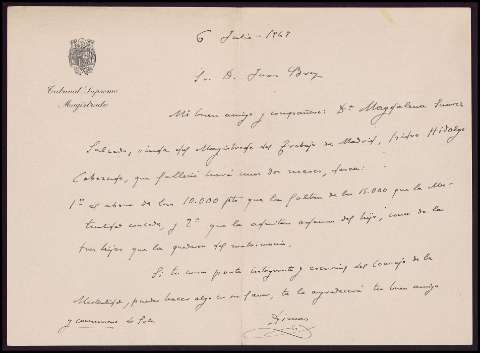 6 Julio - 1948
Tribunal Supremo
Magistrado
Sr. D. Juan Brey
Mi buen amigo y compañero: Dª Magdalena Suarez
Salcedo, viuda del Magistrado del Trabajo de Madrid, Hidalgo
que falleció hará unos dos meses, desea:
1º el abono de las 10.000 pts que la faltan de las 15.000 que la Mu-
tualidad concede, y 2º que la admitan del hijo, como de la
tres hijos que la quedaron del matrimonio.
Si tu como parte integrante y del Consejo de la
Mutualidad, puedes hacer algo en su favor, te lo agradecerá tu buen amigo
y
Dimas